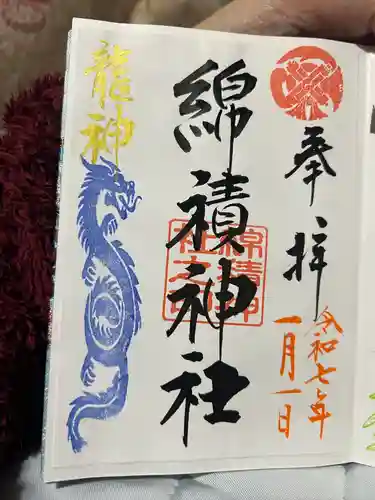 奉拝
令和七年
一月一日
綿積神社
綿積神
社之印
龍神